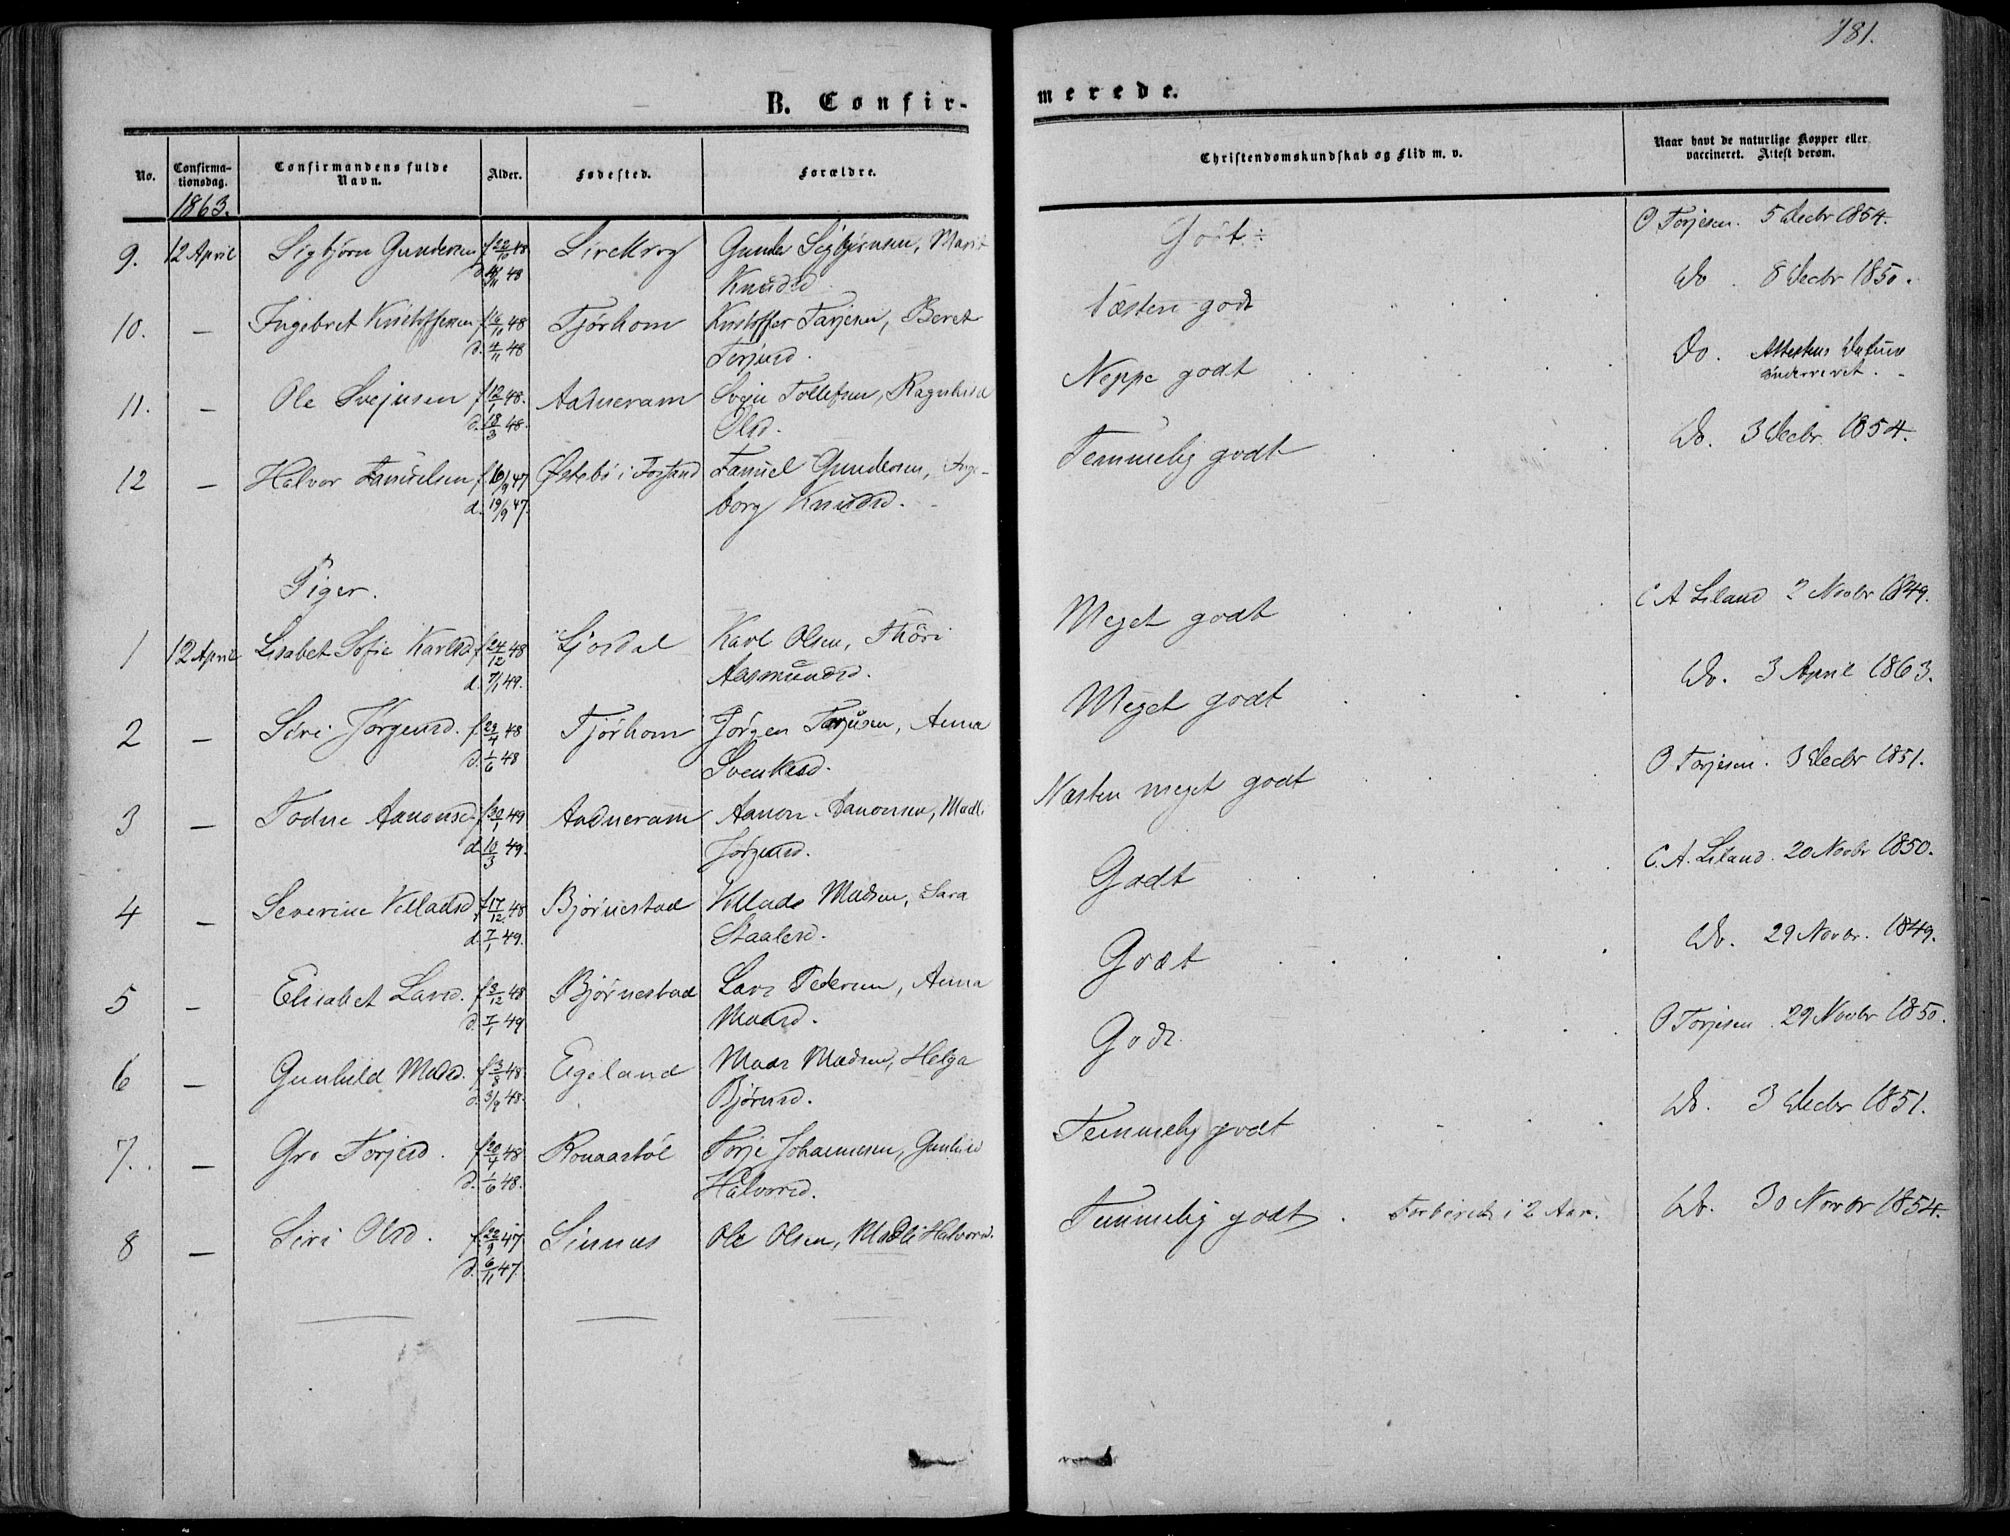 181.
B. Confir-
merede.
No.
Confirma-
tionsdag.
Confirmandens fulde
Navn.
Alder.
Fødested.
Forældre.
Christendomskundskab og Flid m. v.
Naar havt de naturlige Kopper eller
vaccineret. Attest derom.
1863.
9. 12 April Sigbjørn Gundersen f 22/10 48 Gunder Sigbjørnsen, Marit Godt ÷ O Torjesen. 5 Decbr 1854.
48 Knudsd.
10. — Ingebret Kristoffersen f 16/10 48 Tjørhom Kristoffer Tarjesen, Beret Næsten godt Do. 8 Decbr 1850.
d. 4/11 48 Torjusd.
11. — Ole Svejnsen f 12/1 48. Aadneram Svejn Tollefsen, Ragnhild Neppe godt Do. Attestens Datum
d. 18/3 48. Olsd.
12 — Halvor Samuelsen f 16/9 47 Østebø i Fossand Samuel Gundersen, Inge- Temmelig godt Do. 3 Decbr. 1854.
d. 19/9 47. borg Knudsd.
Piger.
1 12 April Lisabet Sofie Karlsd f 24/12 48 Sjosdal Karl Olsen, Thöri Meget godt C A Liland 2 Novbr 1849.
d. 7/1 49. Aasmundsd.
2 — Siri Jørgensd. f 23/4 48 Tjørhom Jørgen Tarjesen, Anna Meget godt Do. 3 April 1863.
d. 1/6 48 Svenkesd.
3 — Todne Aanonsd f 30/1 49 Aadneram Aanon Aanonsen, Madli Næsten meget godt O Torjesen. 3 Decbr 1851.
d. 10/3 49. Jørgensd.
4 — Severine Villadsd f 17/12 48 Bjørnestad Villads Madsen, Sara Godt C. A. Liland. 20 Novbr 1850.
d. 7/1 49. Staalesd.
5 — Elisabet Larsd. f 3/12 48 Bjørnestad Lars Pedersen, Anna Godt Do. 29 Novbr. 1849.
d. 7/1 49 Madsd.
6 — Gunhild Madsd. f 3/8 48 Eigeland Mads Madsen, Helga Godt. O Torjesen. 29 Novbr 1850.
d. 3/9 48. Bjørnsd.
7. — Gro Torjesd. f 20/4 48 Torje Johannesen, Gunhild Temmelig godt Do. 3 Decbr 1851.
d. 1/6 48. Halvorsd.
8 — Siri Olsd. f 22/9 47 Sinnes Ole Olsen, Madli Halvorsd. Temmelig godt. Forberedt i 2 Aar. Do. 30 Novbr 1854.
d. 6/11 47.